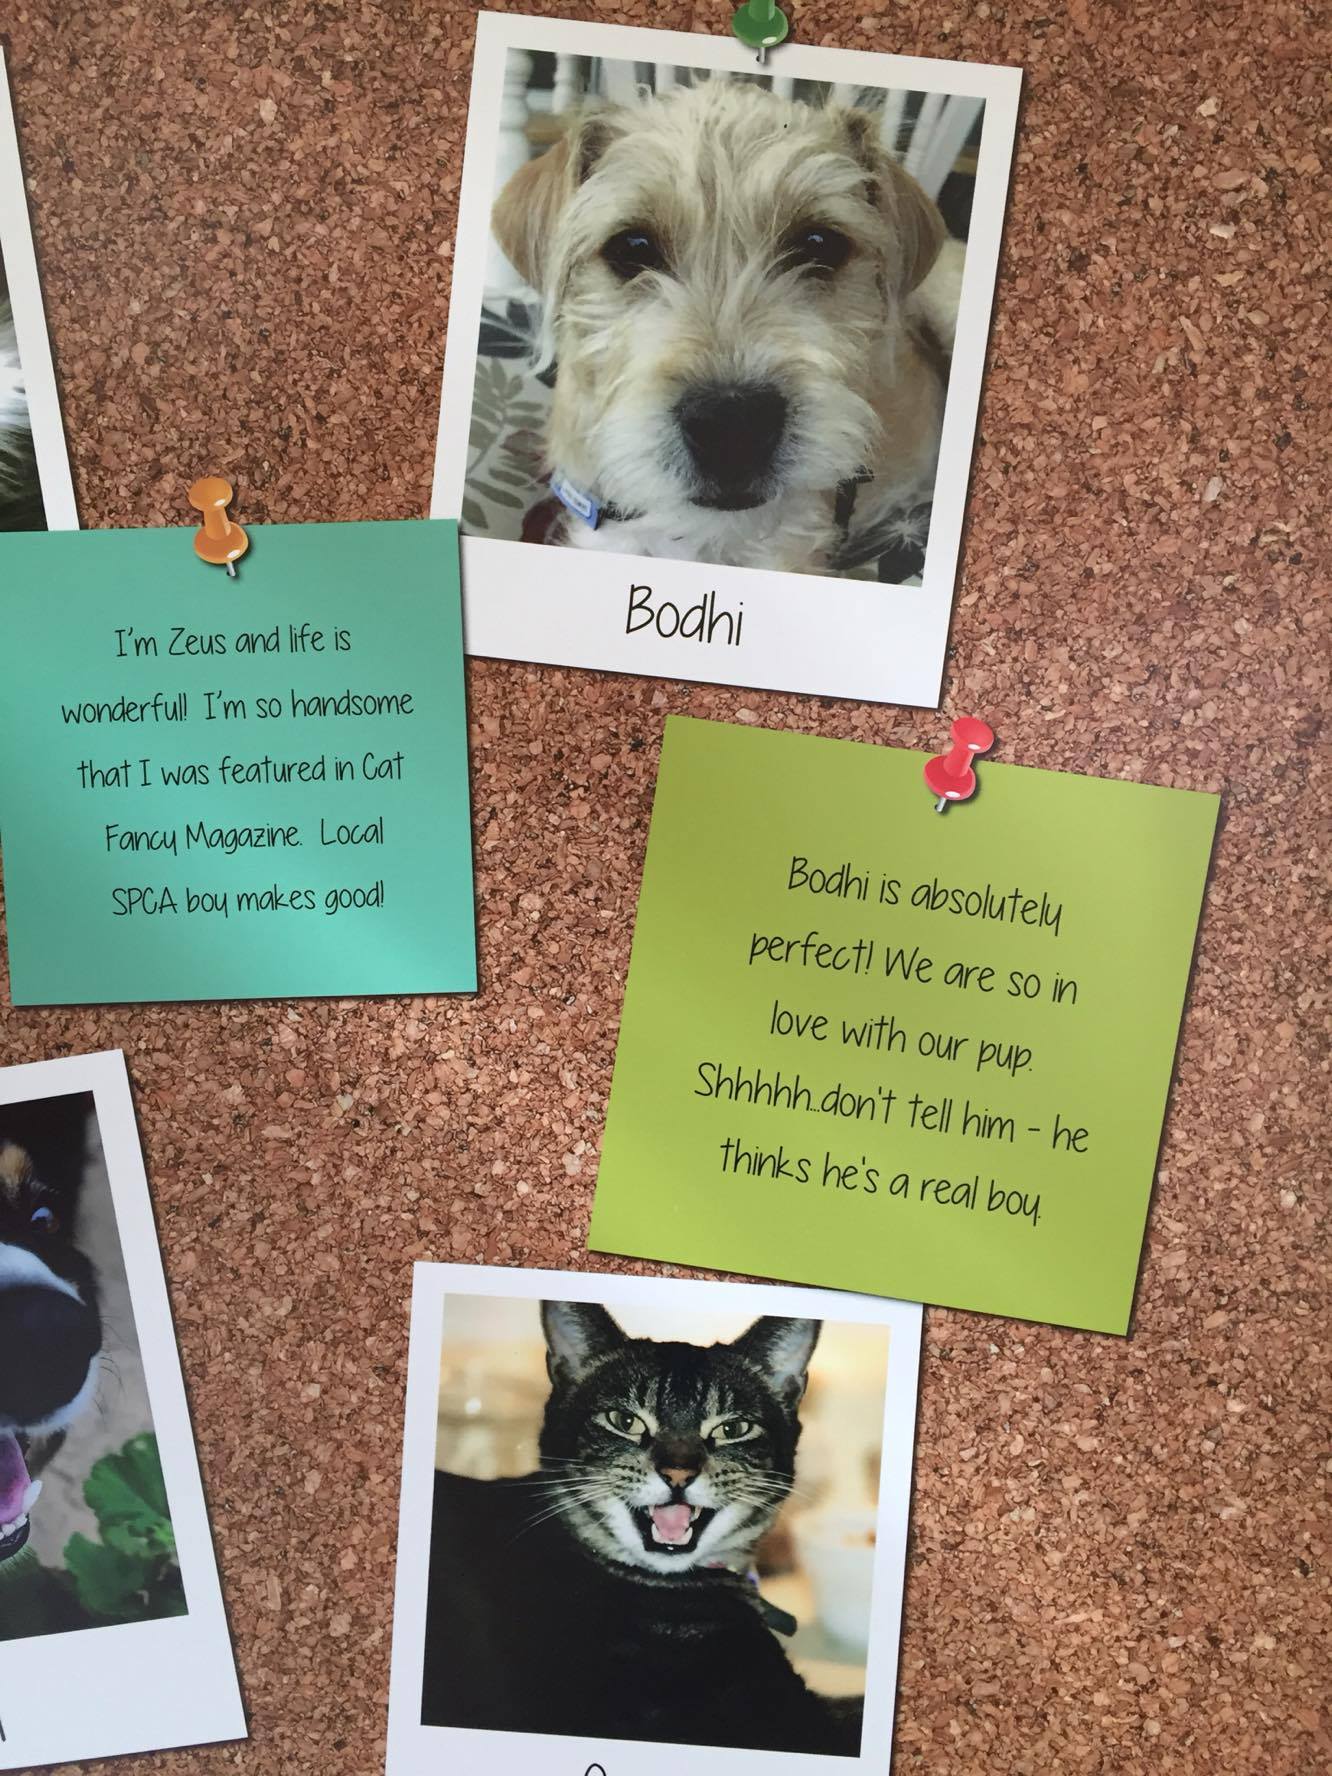 Bodhi
I'm Zeus and life is
wonderful! I'm so handsome
that I was featured in Cat
Fancy Magazine. Local
SPCA boy makes good!
Bodhi is absolutely
perfect! We are so in
love with our pup.
Shhhhh...don't tell him - he
thinks he's a real boy.